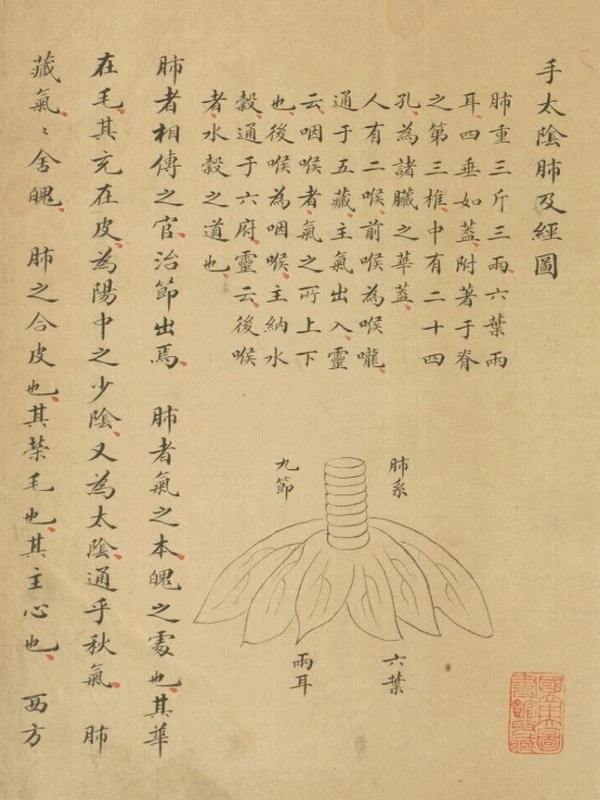 手太陰肺及經圖
肺重三斤三兩六葉兩
耳四垂如蓋附著于脊
之第三椎中有二十四
孔為諸臟之華蓋
人有二喉前喉為喉嚨
通于五藏主氣出入靈
云咽喉者氣之所上下
也後喉為咽喉主納水
穀通于六府靈云後喉
者水穀之道也
肺系
九節
六葉
兩耳
肺者相傳之官治節出焉 肺者氣之本魄之處也其華
在毛其充在皮為陽中之少陰又為太陰通乎秋氣 肺
藏氣〻舍魄 肺之合皮也其榮毛也其主心也 西方
國立中央圖
書館收藏